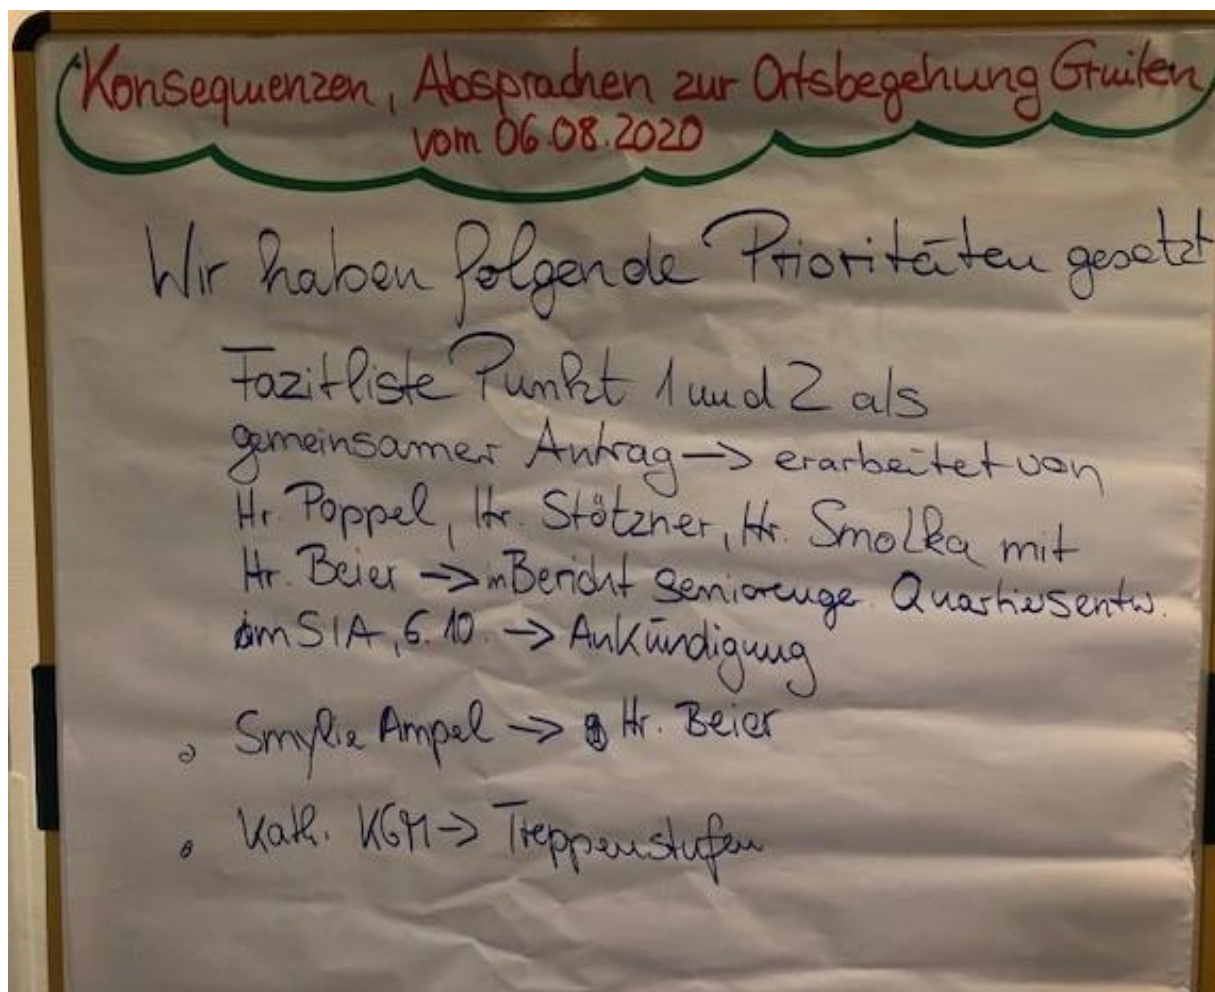 Konsequenzen, Absprachen zur Ortsbegehung Gruiten
vom 06.08.2020
Wir haben folgende Prioritäten gesetzt
Fazitliste Punkt 1 und 2 als
gemeinsamer Antrag → erarbeitet von
Hr. Poppel, Hr. Stötzner, Hr. Smolka mit
Hr. Beier → in Bericht seniorenge. Quartiersentw.
im SIA, 6.10. → Ankündigung
Smylie Ampel → Hr. Beier
Kath. KGM → Treppenstufen